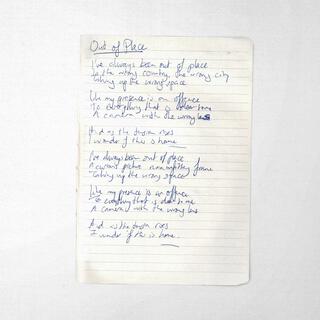 Out of Place
I've always been out of place
In the wrong country, the wrong city
Taking up the wrong space
Like my presence is an offence
To everything that is
A camera with the wrong lens
And as the dawn rises
I wonder if this is home
I've always been out of place
A curved picture non-comforming frame
Taking up the wrong space
Like my presence is an offence
To everything that is
A camera with the wrong lens
And as the dawn rises
I wonder if this is home.